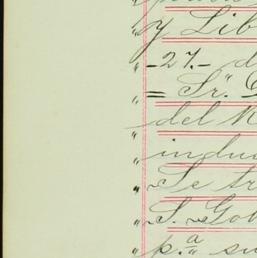 y Lib
"-27.- d
"= Sr. D
del M
indu
"Se tr
"S. Gob
"p.a su